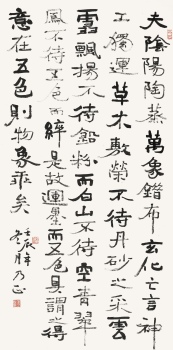 夫陰陽陶蒸萬象錯布玄化亡言神
工獨運草木敷榮不待丹砂之采雲
雪飄揚不待鉛粉而白山不待空青翠
鳳不待五色而綷是故運墨而五色具謂之得
意在五色則物象乖矣
壬辰
乃正